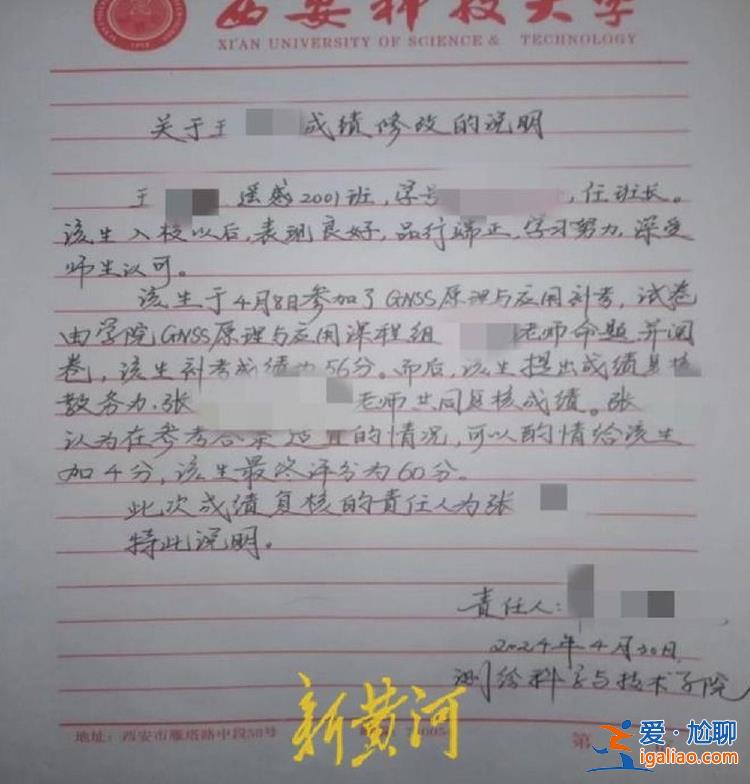 西安科技大学
XI'AN UNIVERSITY OF SCIENCE & TECHNOLOGY
关于王 成绩修改的说明
王 遥感2001班,学号 ,任班长。
该生入校以后,表现良好,品行端正,学习努力,深受
师生认可。
该生于4月8日参加了GNSS原理与应用补考,试卷
由学院GNSS原理与应用课程组 老师命题并阅
卷,该生补考成绩为56分。而后,该生提出成绩复核
教务办张 老师共同复核成绩。张
认为在参考答案 的情况,可以酌情给该生
加4分,该生最终评分为60分。
此次成绩复核的责任人为张
特此说明。
责任人:
2024年4月30日
测绘科学与技术学院
地址:西安市雁塔路中段58号 第
新黄河
爱·尴聊
igaliao.com